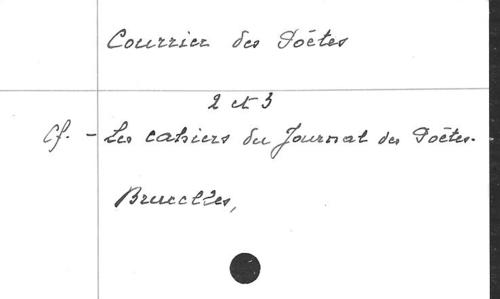 Courrier des Poètes
2 et 3
Cf. - Les cahiers du Journal des Poètes.
Bruxelles,